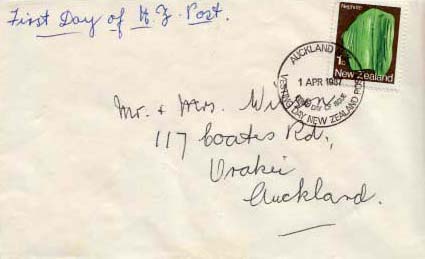 First Day of N.Z. Post.
Nephrite
1c
New Zealand
AUCKLAND
1 APR 1987
FIRST DAY OF ISSUE
VESTING DAY NEW ZEALAND POST
Mr. & Mrs.
117 Coates Rd.,
Orakei
Auckland.